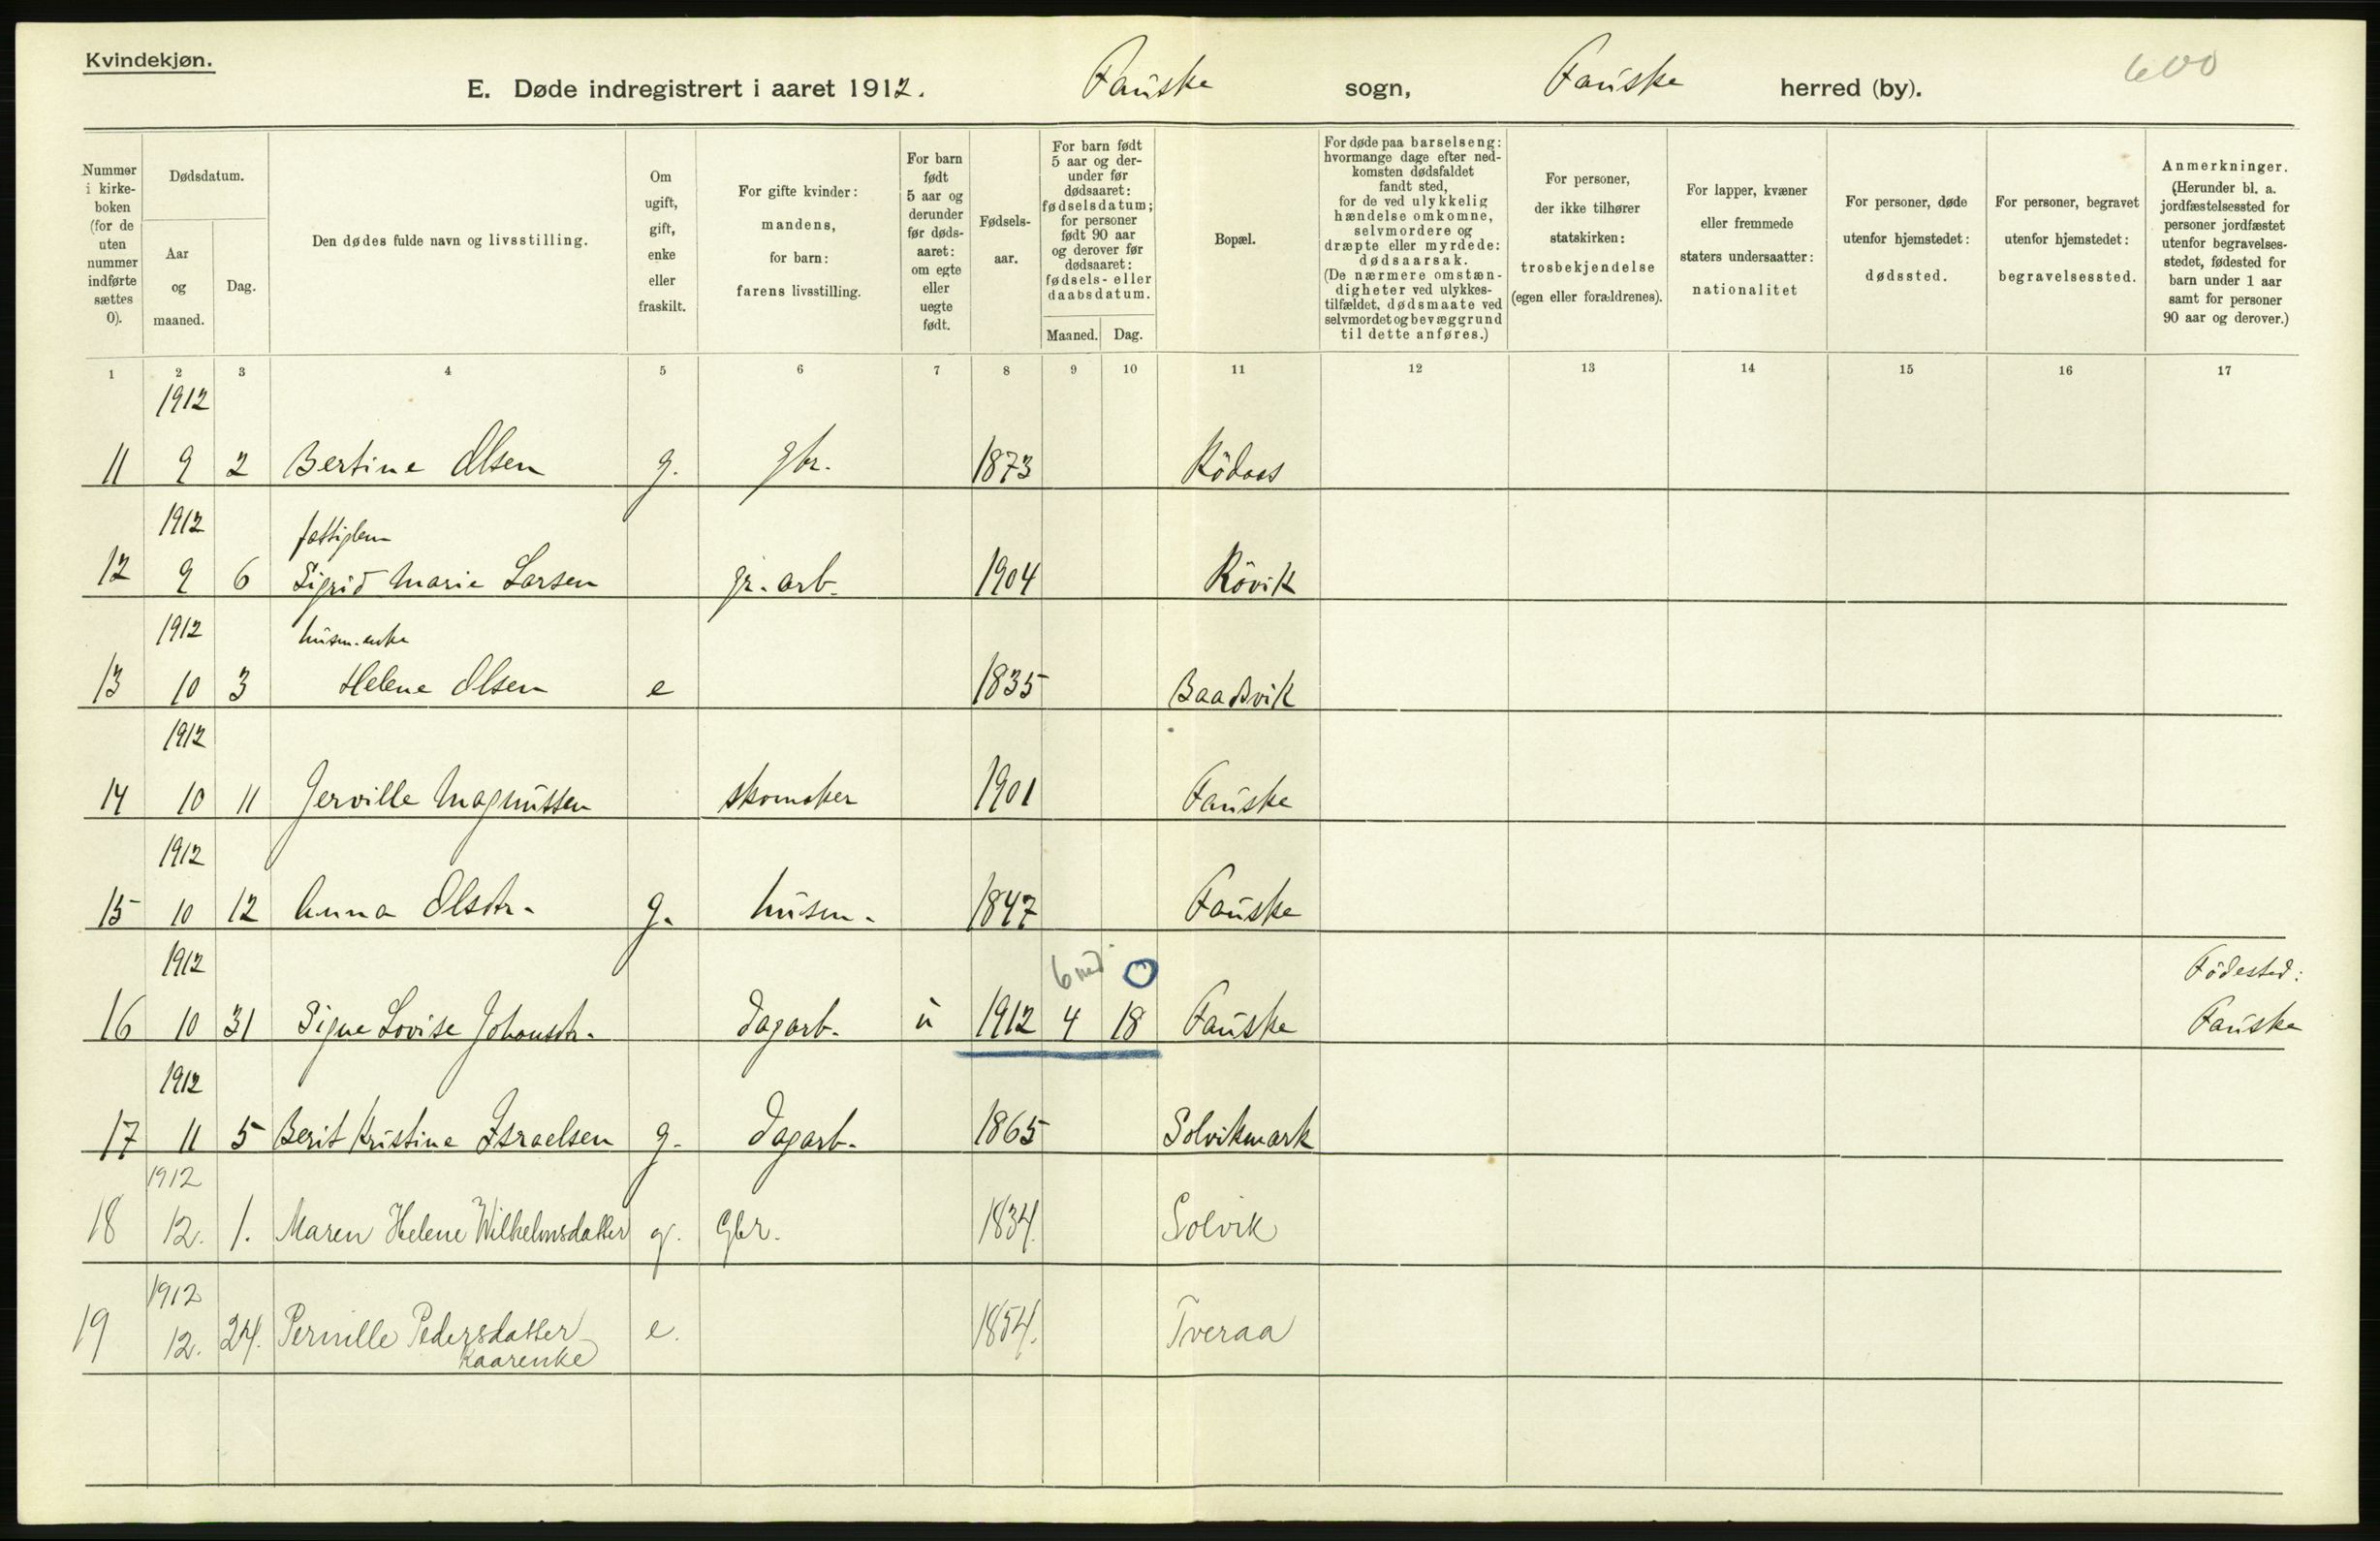 Kvindekjøn.
E. Døde indregistrert i aaret 1912. Fauske sogn, Fauske herred (by). 600
Nummer i kirke- boken (for de uten nummer indførte sættes 0).
Dødsdatum.
Aar og maaned.
Dag.
Den dødes fulde navn og livsstilling.
Om ugift, gift, enke eller fraskilt.
For gifte kvinder: mandens, for barn: farens livsstilling.
For barn født 5 aar og derunder før døds- aaret: om egte eller uegte født.
Fødsels- aar.
For barn født 5 aar og der- under før dødsaaret: fødselsdatum; for personer født 90 aar og derover før dødsaaret: fødsels- eller daabsdatum.
Maaned. Dag.
Bopæl.
For døde paa barselseng: hvormange dage efter ned- komsten dødsfaldet fandt sted, for de ved ulykkelig hændelse omkomne, selvmordere og dræpte eller myrdede: dødsaarsak. (De nærmere omstæn- digheter ved ulykkes- tilfældet, dødsmaate ved selvmordet og bevæggrund til dette anføres.)
For personer, der ikke tilhører statskirken: trosbekjendelse (egen eller forældrenes).
For lapper, kvæner eller fremmede staters undersaatter: nationalitet
For personer, døde utenfor hjemstedet: dødssted.
For personer, begravet utenfor hjemstedet: begravelsessted.
Anmerkninger. (Herunder bl. a. jordfæstelsessted for personer jordfæstet utenfor begravelses- stedet, fødested for barn under 1 aar samt for personer 90 aar og derover.)
1 2 3 4 5 6 7 8 9 10 11 12 13 14 15 16 17
1912
11 9 2 Bertine Olsen g. gbr. 1873 Rödaas
1912
fattiglem
12 9 6 Sigrid Marie Larsen gr. arb. 1904 Rövik
1912
husm. enke
13 10 3 Helene Olsen e 1835 Baadsvik
1912
14 10 11 Jerville Magnussen skomaker 1901 Fauske
1912
15 10 12 Anna Olsdtr. g. husm. 1847 Fauske
1912 6 md 0 Födested:
16 10 31 Signe Lovise Johansdtr. dagarb. u 1912 4 18 Fauske Fauske
1912
17 11 5 Berit Kristine Israelsen g. dagarb. 1865 Solvikmark
1912
18 12. 1. Maren Helene Wilhelmsdatter g. Gbr. 1834. Solvik
1912
19 12. 24. Pernille Pedersdatter e. 1854. Tveraa
Kaarenke